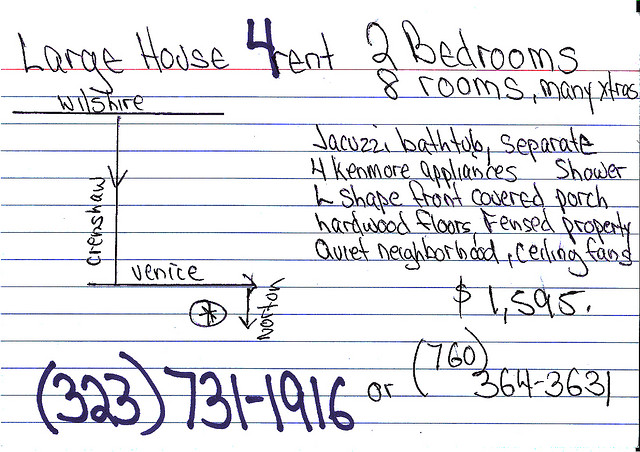 Large House 4rent 2 Bedrooms
8 rooms, many xtras
Wilshire
Jacuzzi bathtub, separate
4 Kenmore appliances Shower
L shape front covered porch
hardwood floors, Fensed property
Quiet neighborhood, ceiling fans
crenshaw
venice
Norton
$ 1,595.
(323) 731-1916 or (760) 364-3631